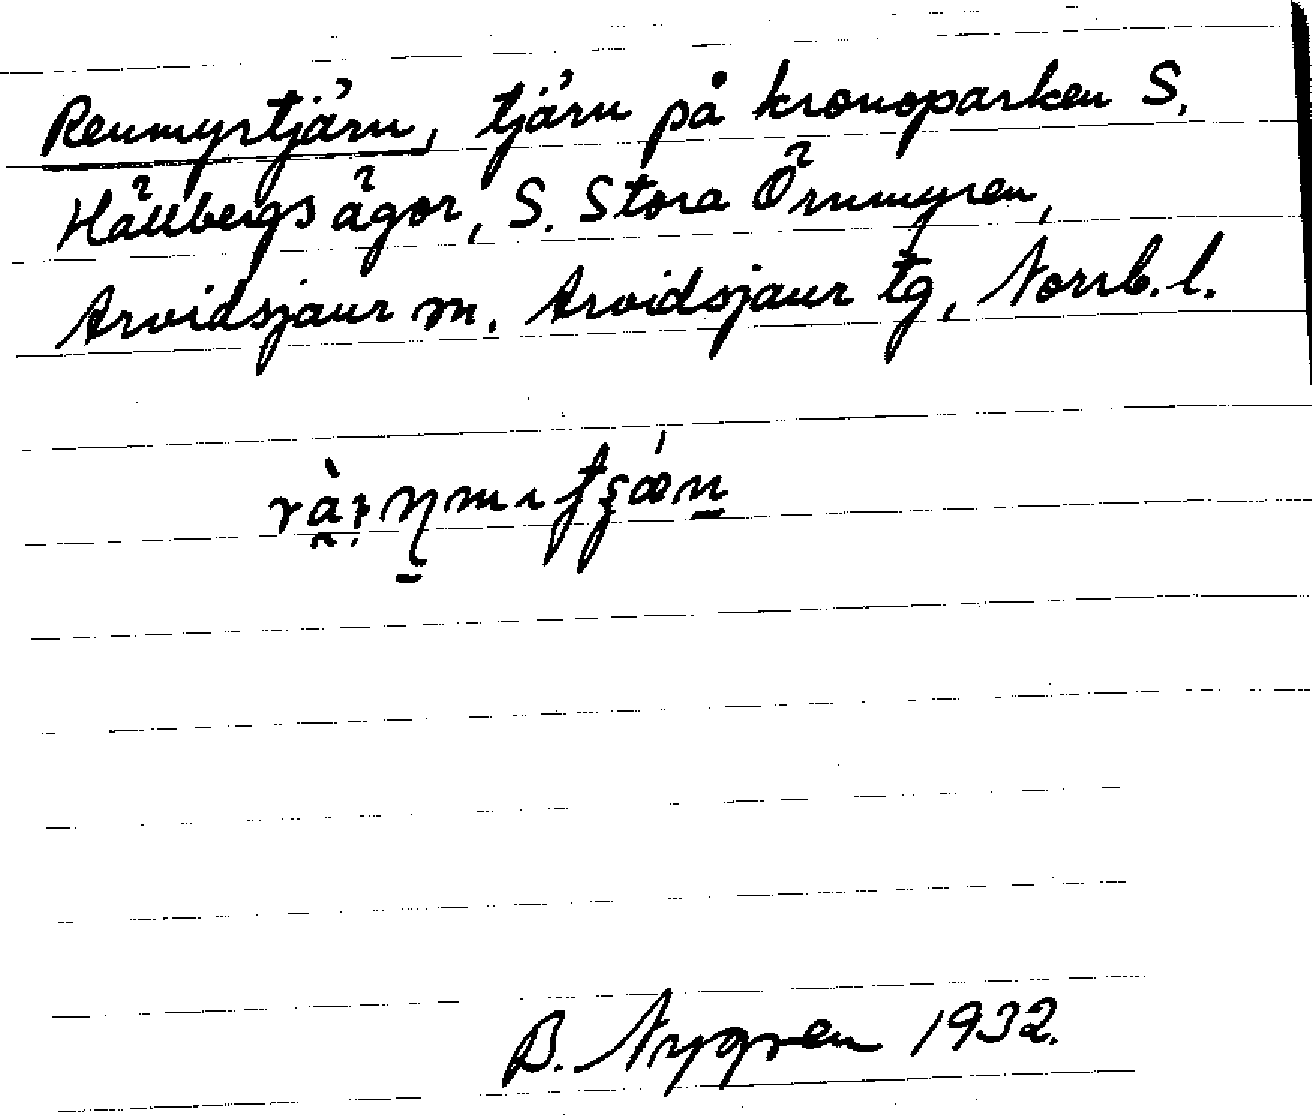 Renmyrtjärn, tjärn på kronoparken S.
Hällbergs ägor, S. Stora Örnmyren,
Arvidsjaur sn. Arvidsjaur tg, Norrb. l.
B. Nygren 1932.